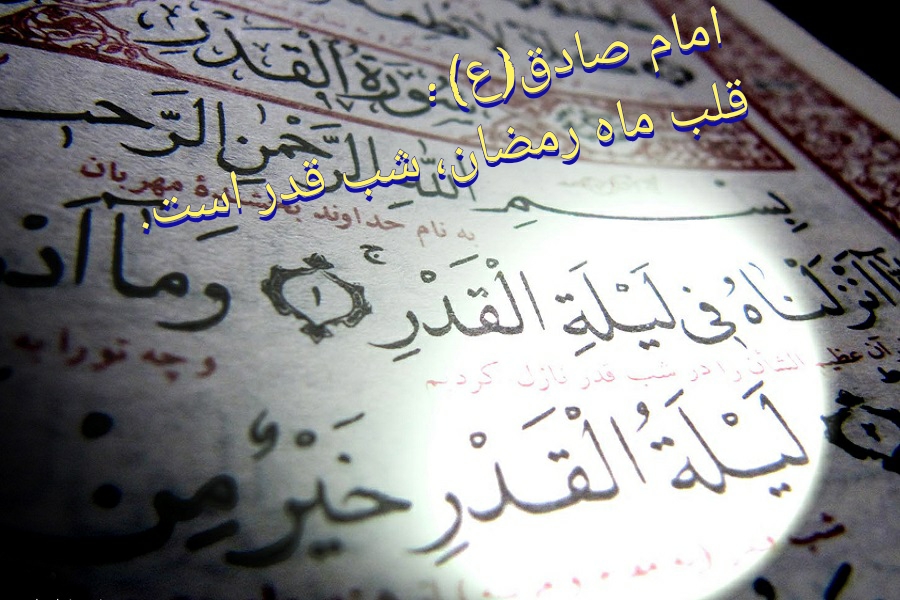 امام صادق(ع) :
قلب ماه رمضان، شب قدر است.
سُورَةُ الْقَدْرِ
بِسْمِ اللَّهِ الرَّحْمٰنِ
به نام خداوند بخشندۀ مهربان
اَنْزَلْنَاهُ فِي لَيْلَةِ الْقَدْرِ ج ١ وَمَا
آن عظیم الشأن را در شب قدر نازل کردیم و چه تو را به
لَيْلَةُ الْقَدْرِ خَيْرٌ مِنْ
شب قدر